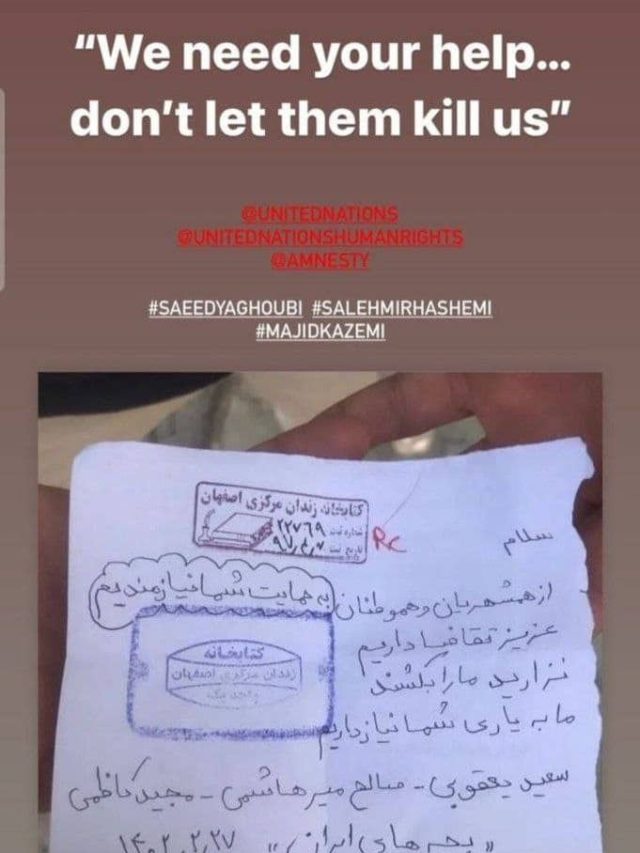 “We need your help...
don’t let them kill us”
@UNITEDNATIONS
@UNITEDNATIONSHUMANRIGHTS
@AMNESTY
#SAEEDYAGHOUBI #SALEHMIRHASHEMI
#MAJIDKAZEMI
کتابخانه زندان مرکزی اصفهان
شماره ثبت ۲۲۷۶۹
تاریخ ثبت
Rc
سلام
از همشهریان و هموطنان به حمایت شما نیازمندیم
عزیز تقاضا داریم
نزارید ما را بکشند
ما به یاری شما نیاز داریم
کتابخانه
زندان مرکزی اصفهان
سعید یعقوبی - صالح میرهاشمی - مجید کاظمی
« بچه های ایران » ۱۴۰۲,۲,۲۷